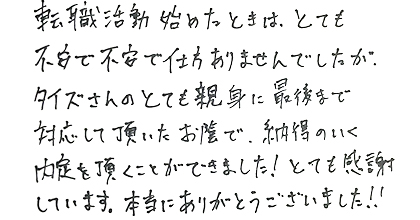 転職活動始めたときは、とても
不安で不安で仕方ありませんでしたが、
タイズさんのとても親身に最後まで
対応して頂いたお陰で、納得のいく
内定を頂くことができました!とても感謝
しています。本当にありがとうございました!!